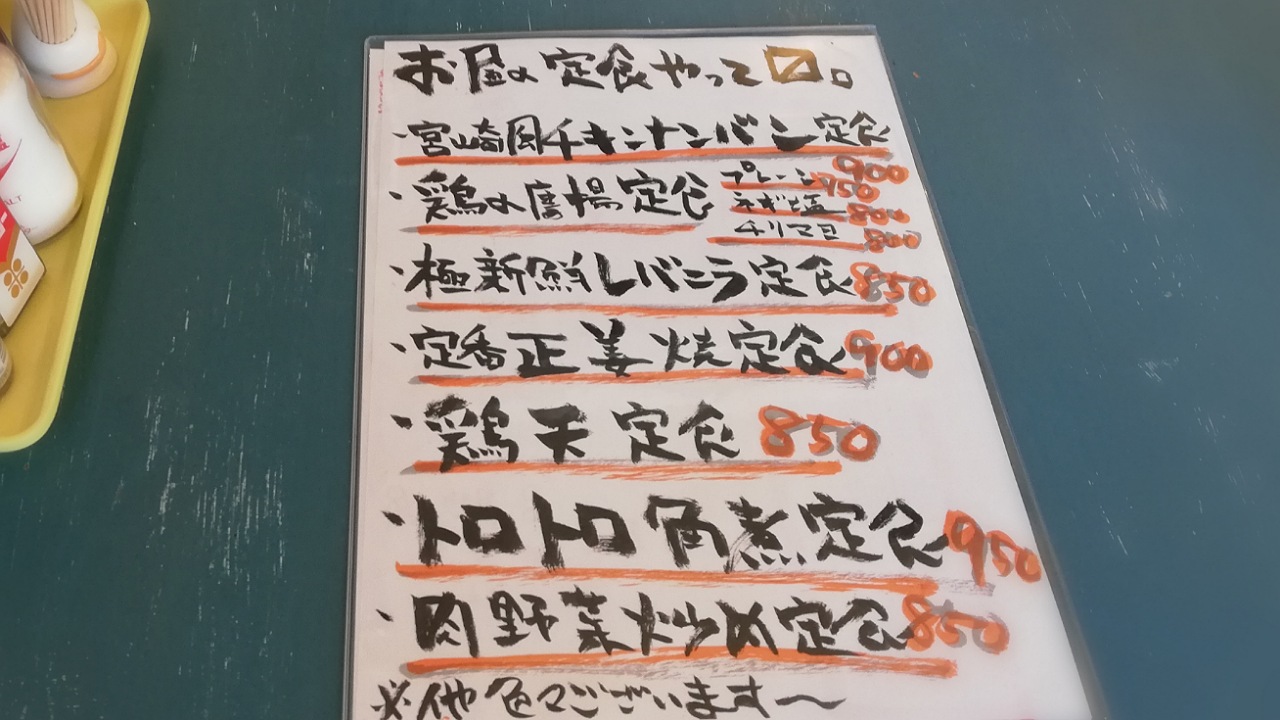 お昼の定食やって〼。
・宮崎風チキンナンバン定食 980
・鶏の唐揚定食
プレーン 750
ネギ塩 880
チリマヨ 880
・極新鮮レバニラ定食 850
・定番正姜焼定食 980
・鶏天定食 850
・トロトロ角煮定食 950
・肉野菜炒め定食 850
※他色々ございます〜